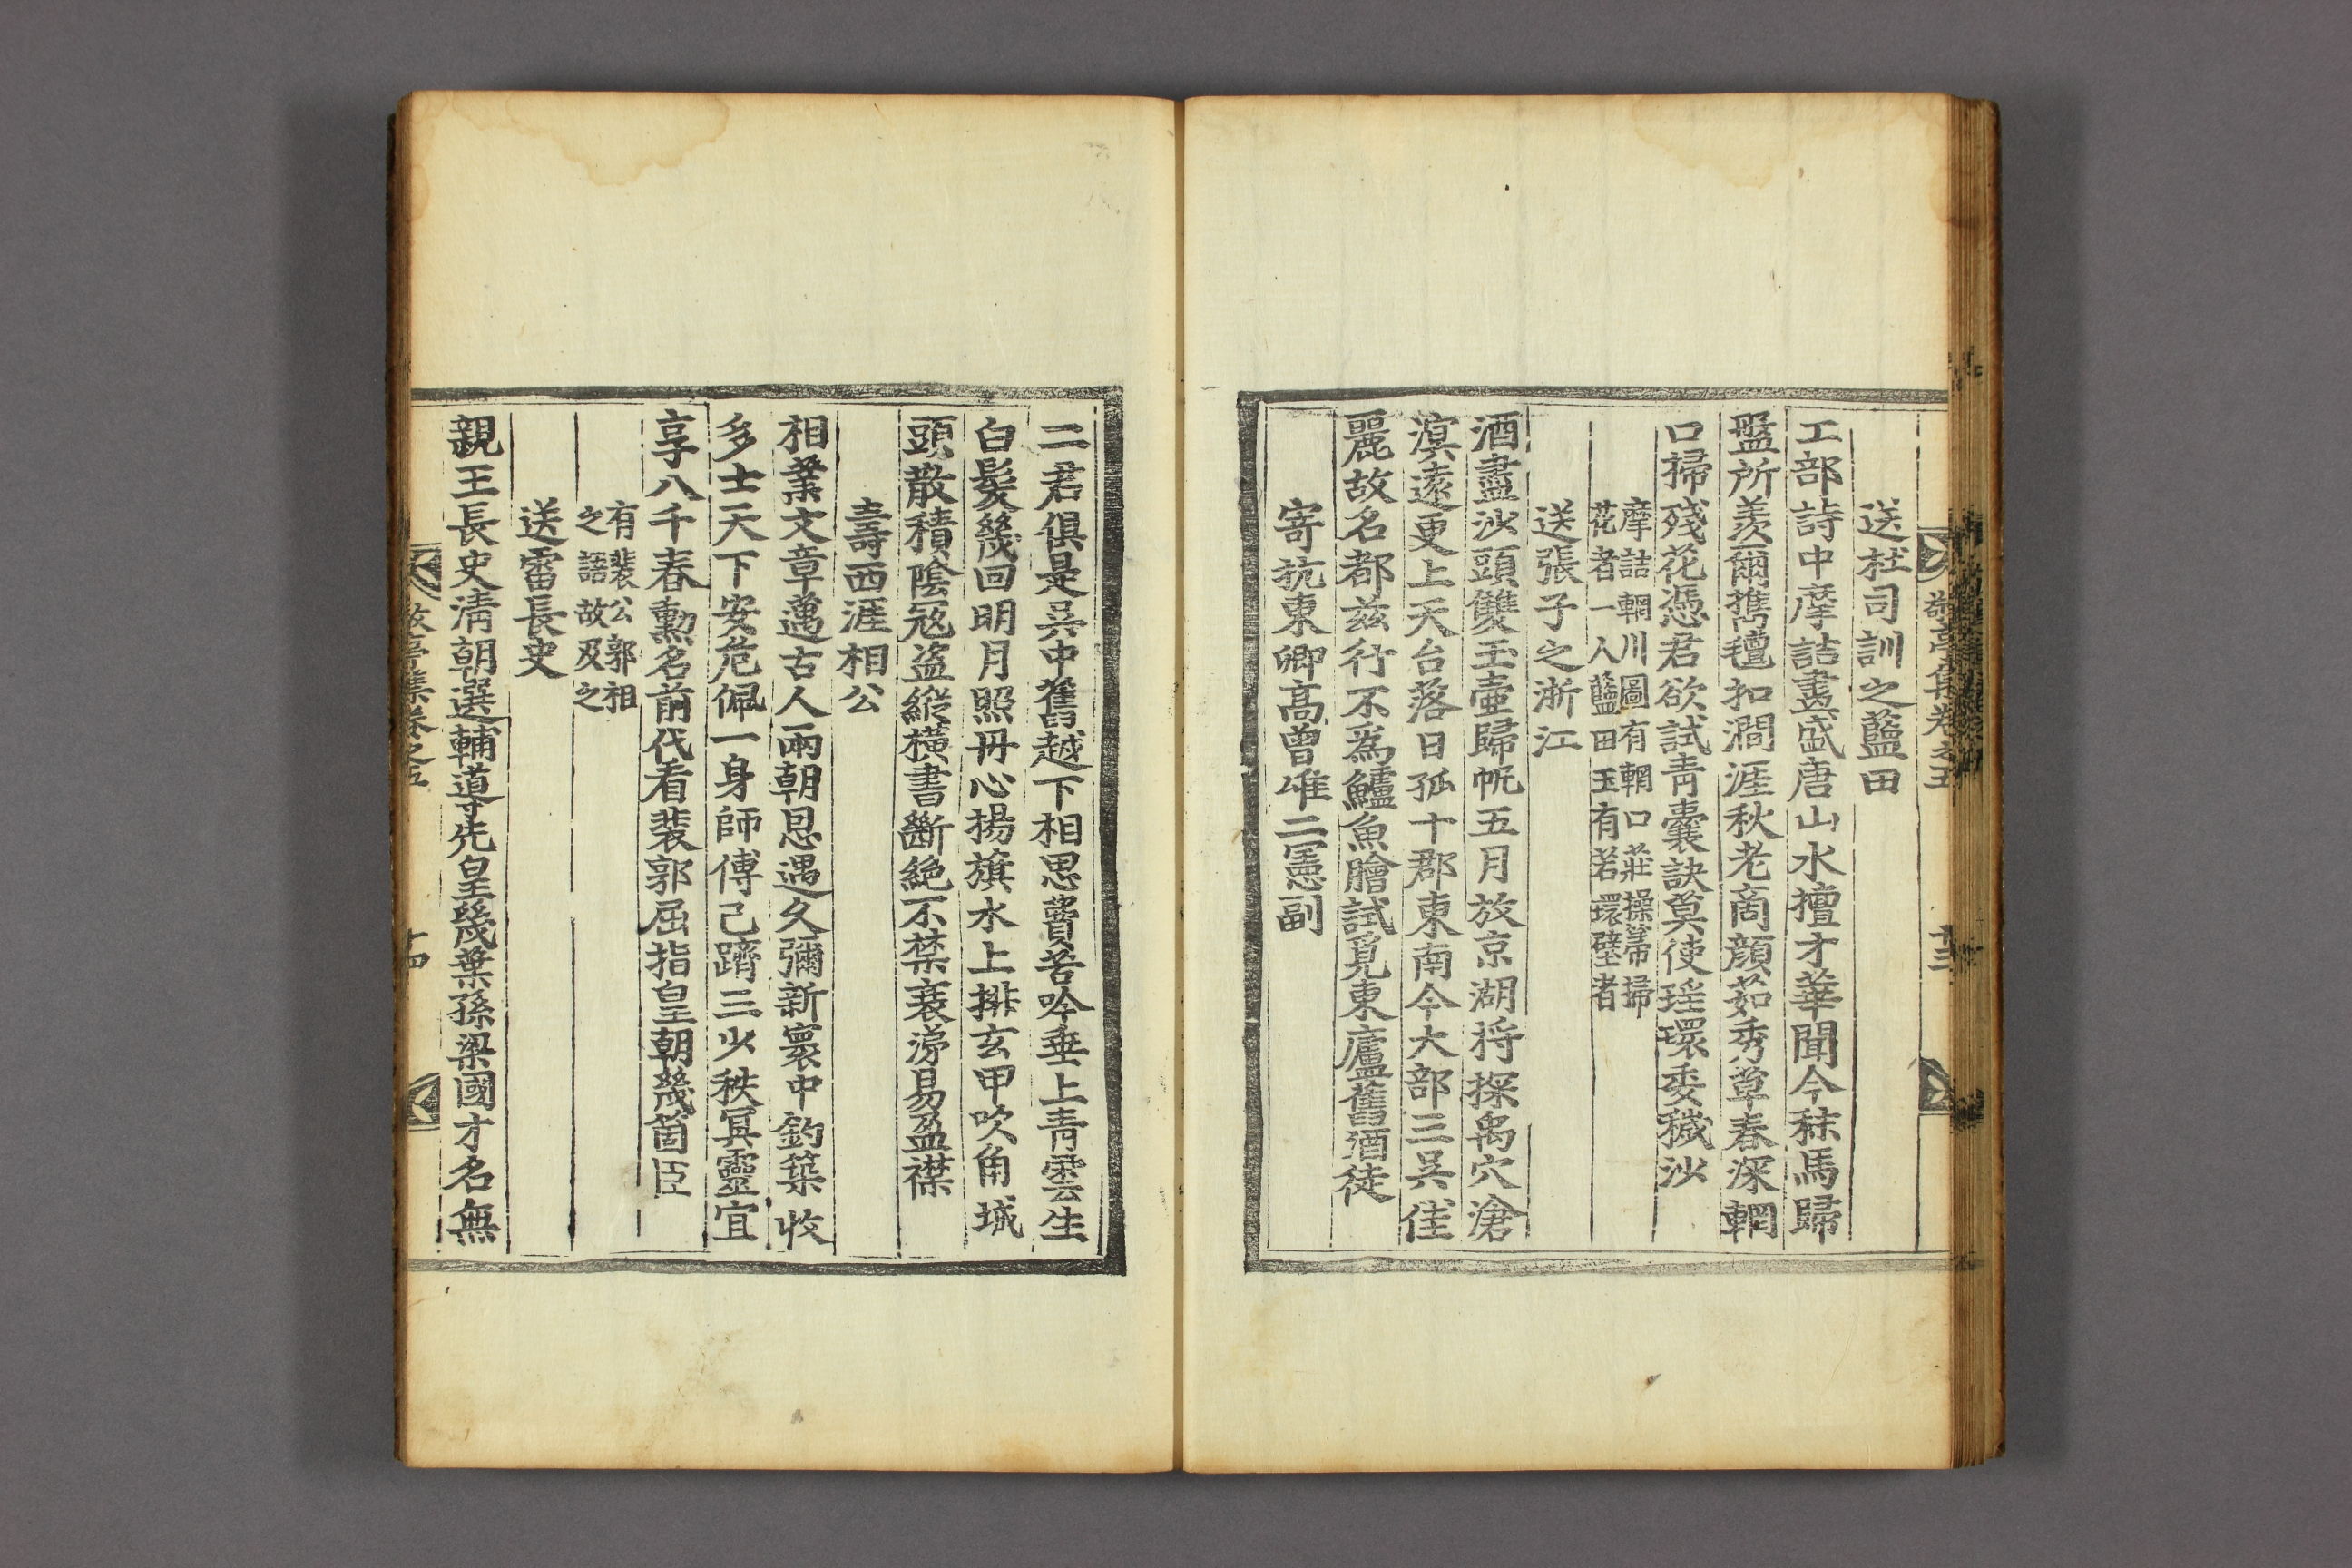 敬亭集卷之五
十三
送杜司訓之藍田
工部詩中摩詰畫盛唐山水擅才華聞今秣馬歸
盤所羡爾擕氊扣澗涯秋老商顔茹秀草春深輞
口掃殘花憑君欲試青囊訣莫使瑶環委穢沙
摩詰輞川圖有輞口莊操箒掃
花者一人藍田玉有若環璧者
送張子之浙江
酒盡沙頭雙玉壷歸帆五月放京湖将探禹穴滄
溟遠更上天台落日孤十郡東南今大部三吳佳
麗故名都兹行不爲鱸魚膾試覓東廬舊酒徒
寄抗東卿高曾唯二憲副
二君俱是吳中舊越下相思費苦吟垂上青雲生
白髮幾回明月照丹心揚旗水上排玄甲吹角城
頭散積陰冦盗縱横書斷絶不禁衰涕易盈襟
壽西涯相公
相業文章邁古人兩朝恩遇久彌新寰中釣築收
多士天下安危佩一身師傅已躋三少秩冥靈宜
享八千春勳名前代看裴郭屈指皇朝幾箇臣
有裴公郭相
之語故及之
送雷長史
親王長史清朝選輔道先皇幾葉孫梁國才名無
敬亭集卷之五
十四